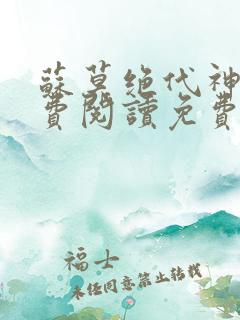 蘇莫绝代神
費閱讀免費
福士
未经同意禁止转载